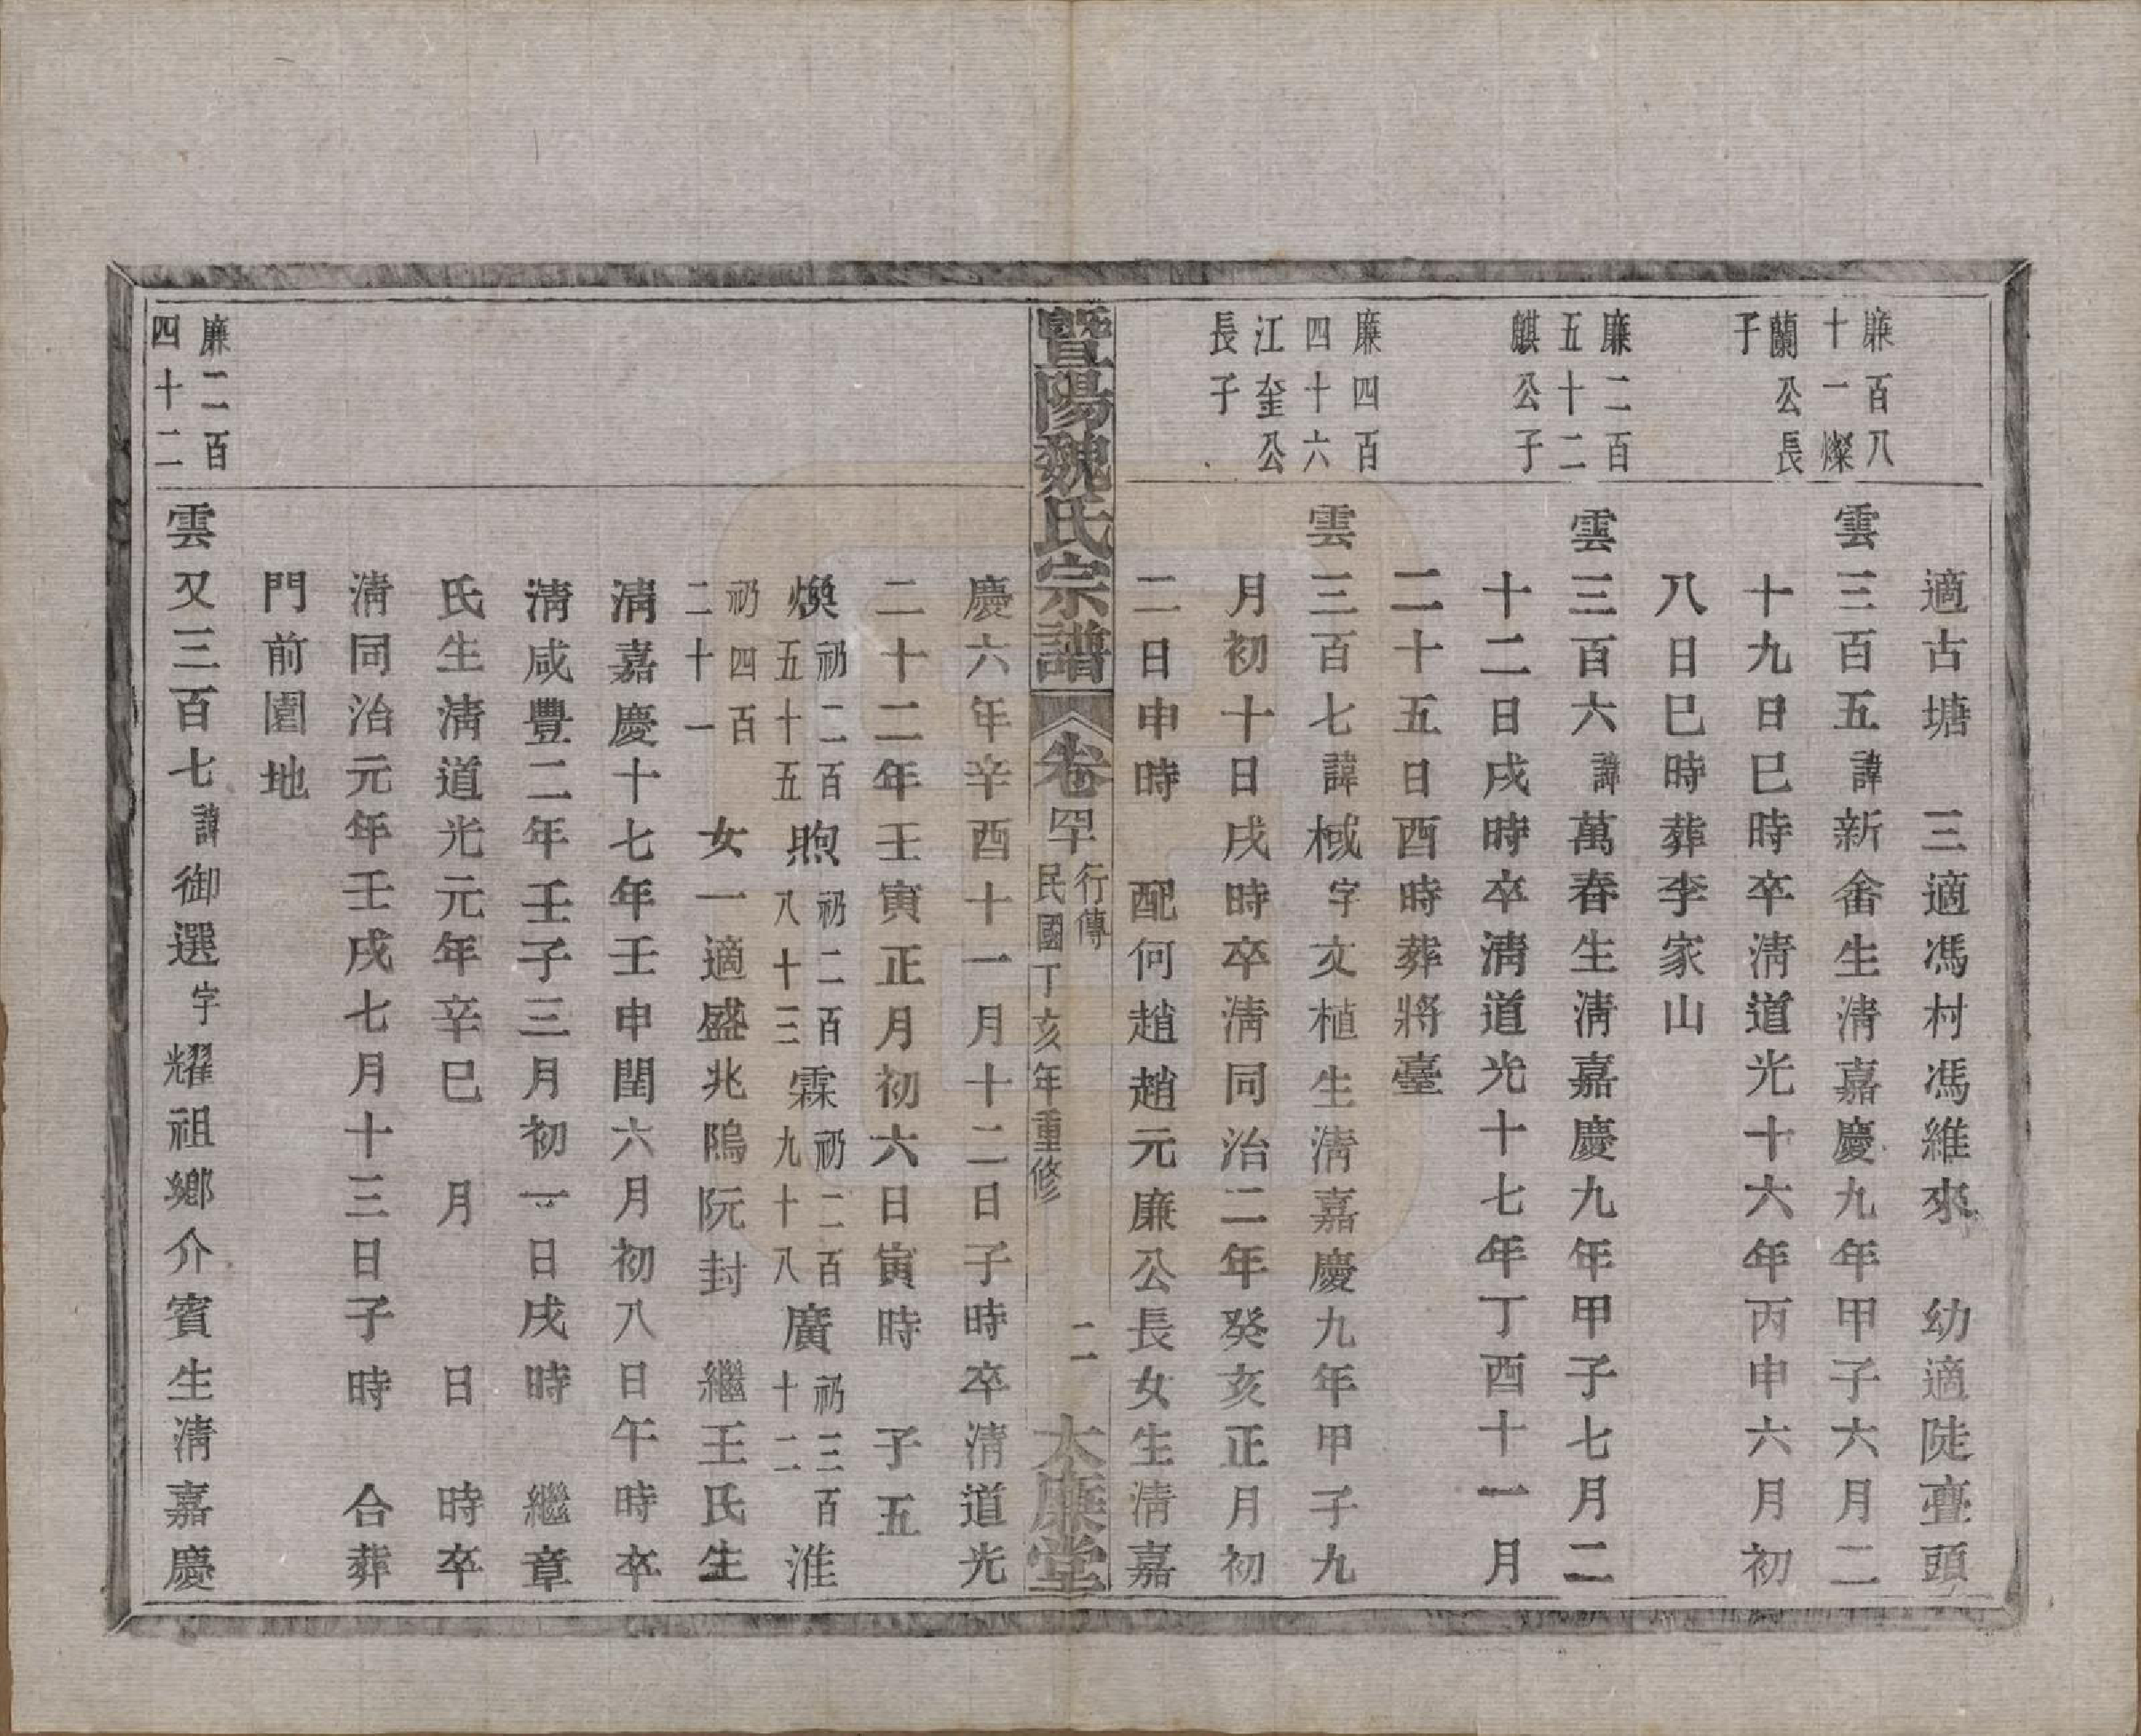 適古塘　三適馮村馮維來　幼適陡亹頭
廉百八
十一燦
蘭公長
子
雲三百五諱新畬生清嘉慶九年甲子六月二
十九日巳時卒清道光十六年丙申六月初
八日巳時葬李家山
廉二百
五十二
麒公子
雲三百六諱萬春生清嘉慶九年甲子七月二
十二日戌時卒清道光十七年丁酉十一月
二十五日酉時葬將臺
廉四百
四十六
江奎公
長子
雲三百七諱棫字文植生清嘉慶九年甲子九
月初十日戌時卒清同治二年癸亥正月初
二日申時　配何趙趙元廉公長女生清嘉
暨陽魏氏宗譜
卷罕
行傳
民國丁亥年重修
二
大廉堂
慶六年辛酉十一月十二日子時卒清道光
二十二年壬寅正月初六日寅時　子五
煥礽二百五十五煦礽二百八十三霖礽二百九十八廣礽三百十二淮
礽四百二十一　女一適盛兆隖阮封　繼王氏生
清嘉慶十七年壬申閏六月初八日午時卒
清咸豐二年壬子三月初一日戌時　繼章
氏生清道光元年辛巳　月　　日　時卒
清同治元年壬戌七月十三日子時　合葬
門前園地
廉二百
四十二
雲又三百七諱御選字耀祖鄉介賓生清嘉慶